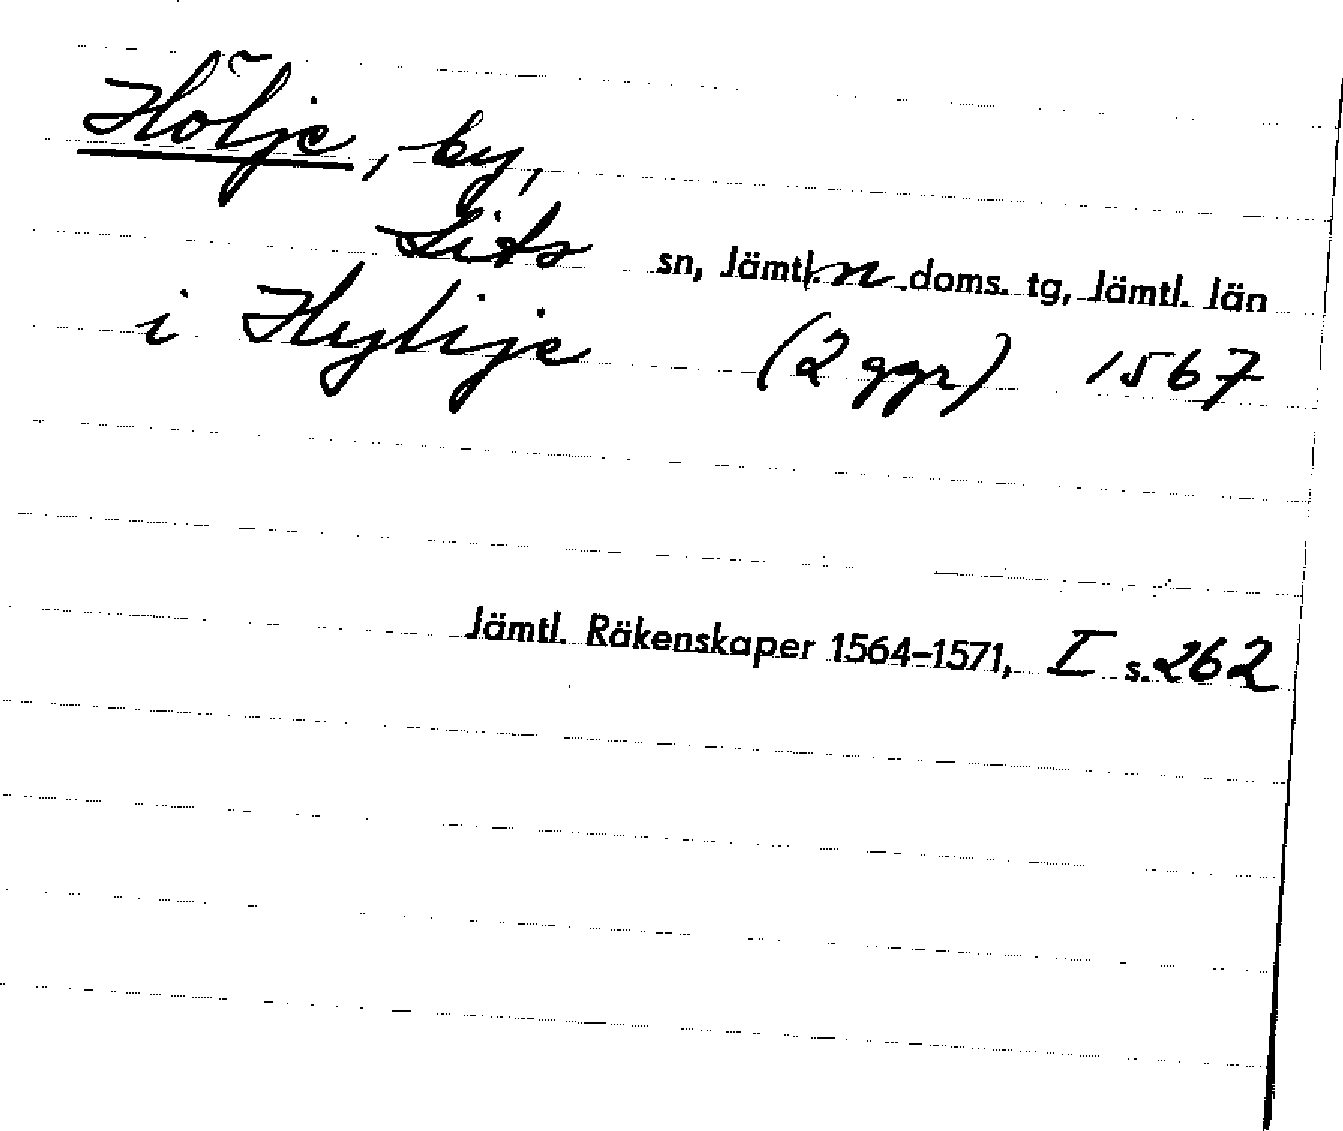 Hölje, by,
Lits sn, Jämtl. n doms. tg, Jämtl. län
i Hylije (2 ggr) 1567
Jämtl. Räkenskaper 1564–1571, I s. 262